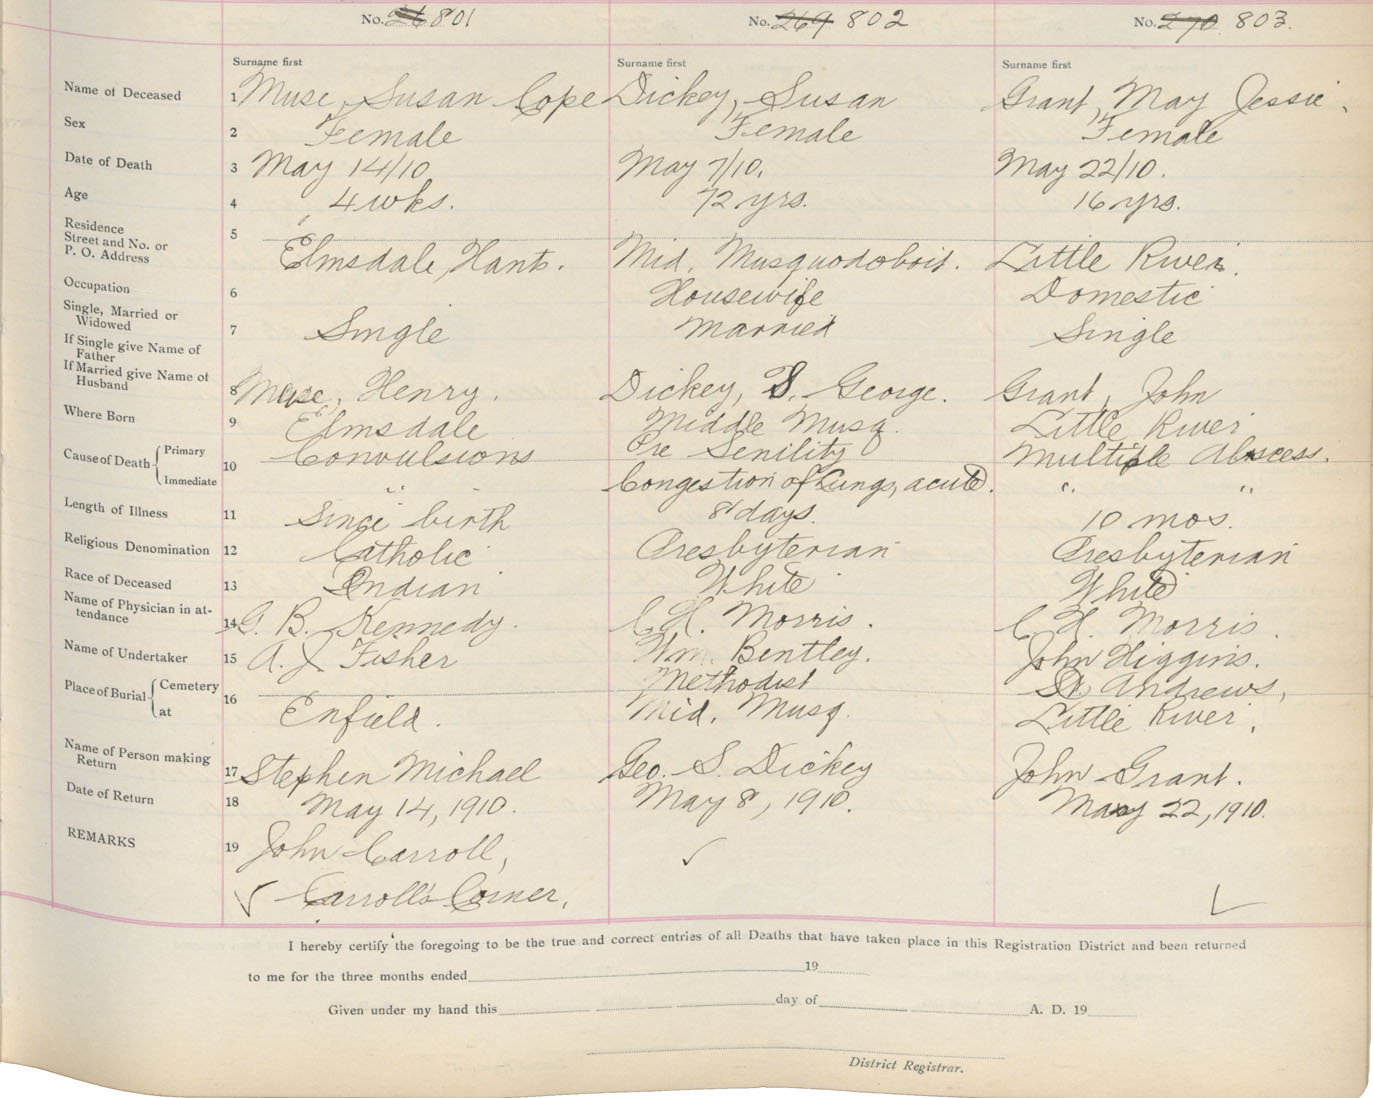 No. 801 No. 269 802 No. 270 803.
Surname first Surname first Surname first
Name of Deceased 1 Muse, Susan Cope Dickey, Susan Grant, May Jessie.
Sex 2 Female Female Female
Date of Death 3 May 14/10 May 7/10. May 22/10.
Age 4 4 wks. 72 yrs. 16 yrs.
Residence
Street and No. or
P. O. Address 5 Elmsdale, Hants. Mid. Musquodoboit. Little River.
Occupation 6 Housewife Domestic
Single, Married or
Widowed 7 Single Married Single
If Single give Name of
Father
If Married give Name of
Husband 8 Muse, Henry. Dickey, S. George. Grant, John
Where Born 9 Elmsdale Middle Musq. Little River
Cause of Death Primary 10 Convulsions Pre Senility Multiple Abscess.
Immediate " Congestion of Lungs, acute. " "
Length of Illness 11 Since birth 8 days. 10 mos.
Religious Denomination 12 Catholic Presbyterian Presbyterian
Race of Deceased 13 Indian White White
Name of Physician in at-
tendance 14 G. B. Kennedy. C. H. Morris. C. H. Morris.
Name of Undertaker 15 A. J. Fisher Wm. Bentley. John Higgins.
Place of Burial Cemetery 16 Methodist St Andrews,
at Enfield. Mid. Musq. Little River.
Name of Person making
Return 17 Stephen Michael Geo. S. Dickey John Grant.
Date of Return 18 May 14, 1910. May 8, 1910. May 22, 1910.
REMARKS 19 John Carroll, ✓
✓ Carroll's Corner. ✓
I hereby certify the foregoing to be the true and correct entries of all Deaths that have taken place in this Registration District and been returned
to me for the three months ended 19
Given under my hand this day of A. D. 19
District Registrar.